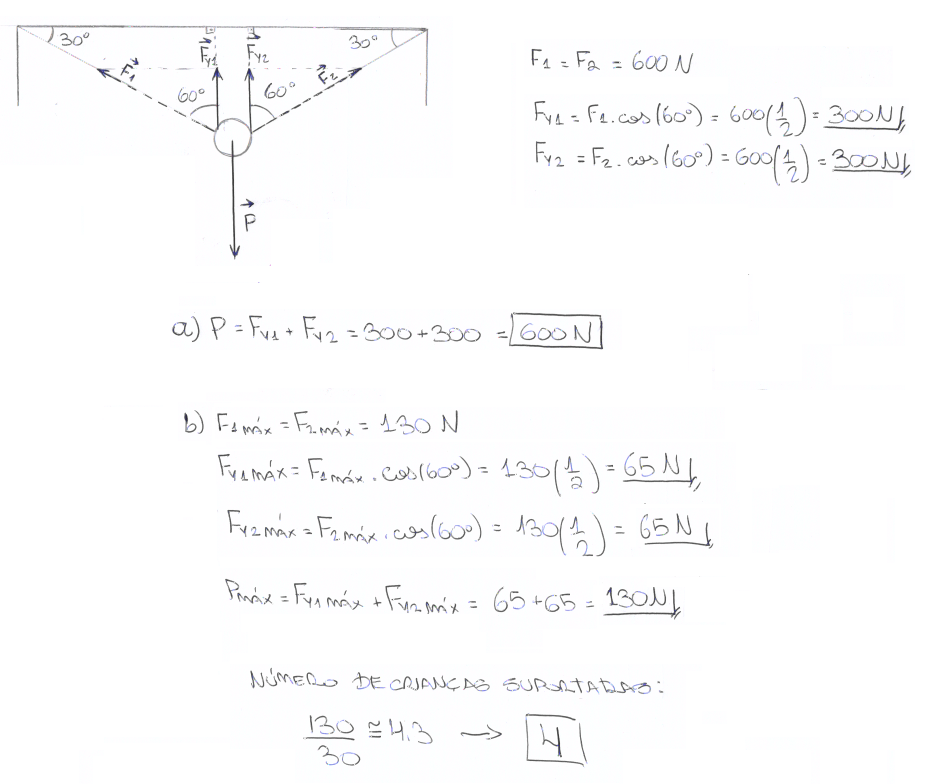 30°
30°
F₁
Fy1
Fy2
F₂
60°
60°
P
F1 = F2 = 600 N
Fy1 = F1.cos(60°) = 600(1/2) = 300N
Fy2 = F2.cos(60°) = 600(1/2) = 300N
a) P = Fy1 + Fy2 = 300+300 = 600 N
b) F1máx = F2máx = 130 N
Fy1máx = F1máx.cos(60°) = 130(1/2) = 65 N
Fy2máx = F2máx.cos(60°) = 130(1/2) = 65 N
Pmáx = Fy1máx + Fy2máx = 65+65 = 130N
NÚMERO DE CRIANÇAS SUPORTADAS:
130/30 ≅ 4.3 → 4